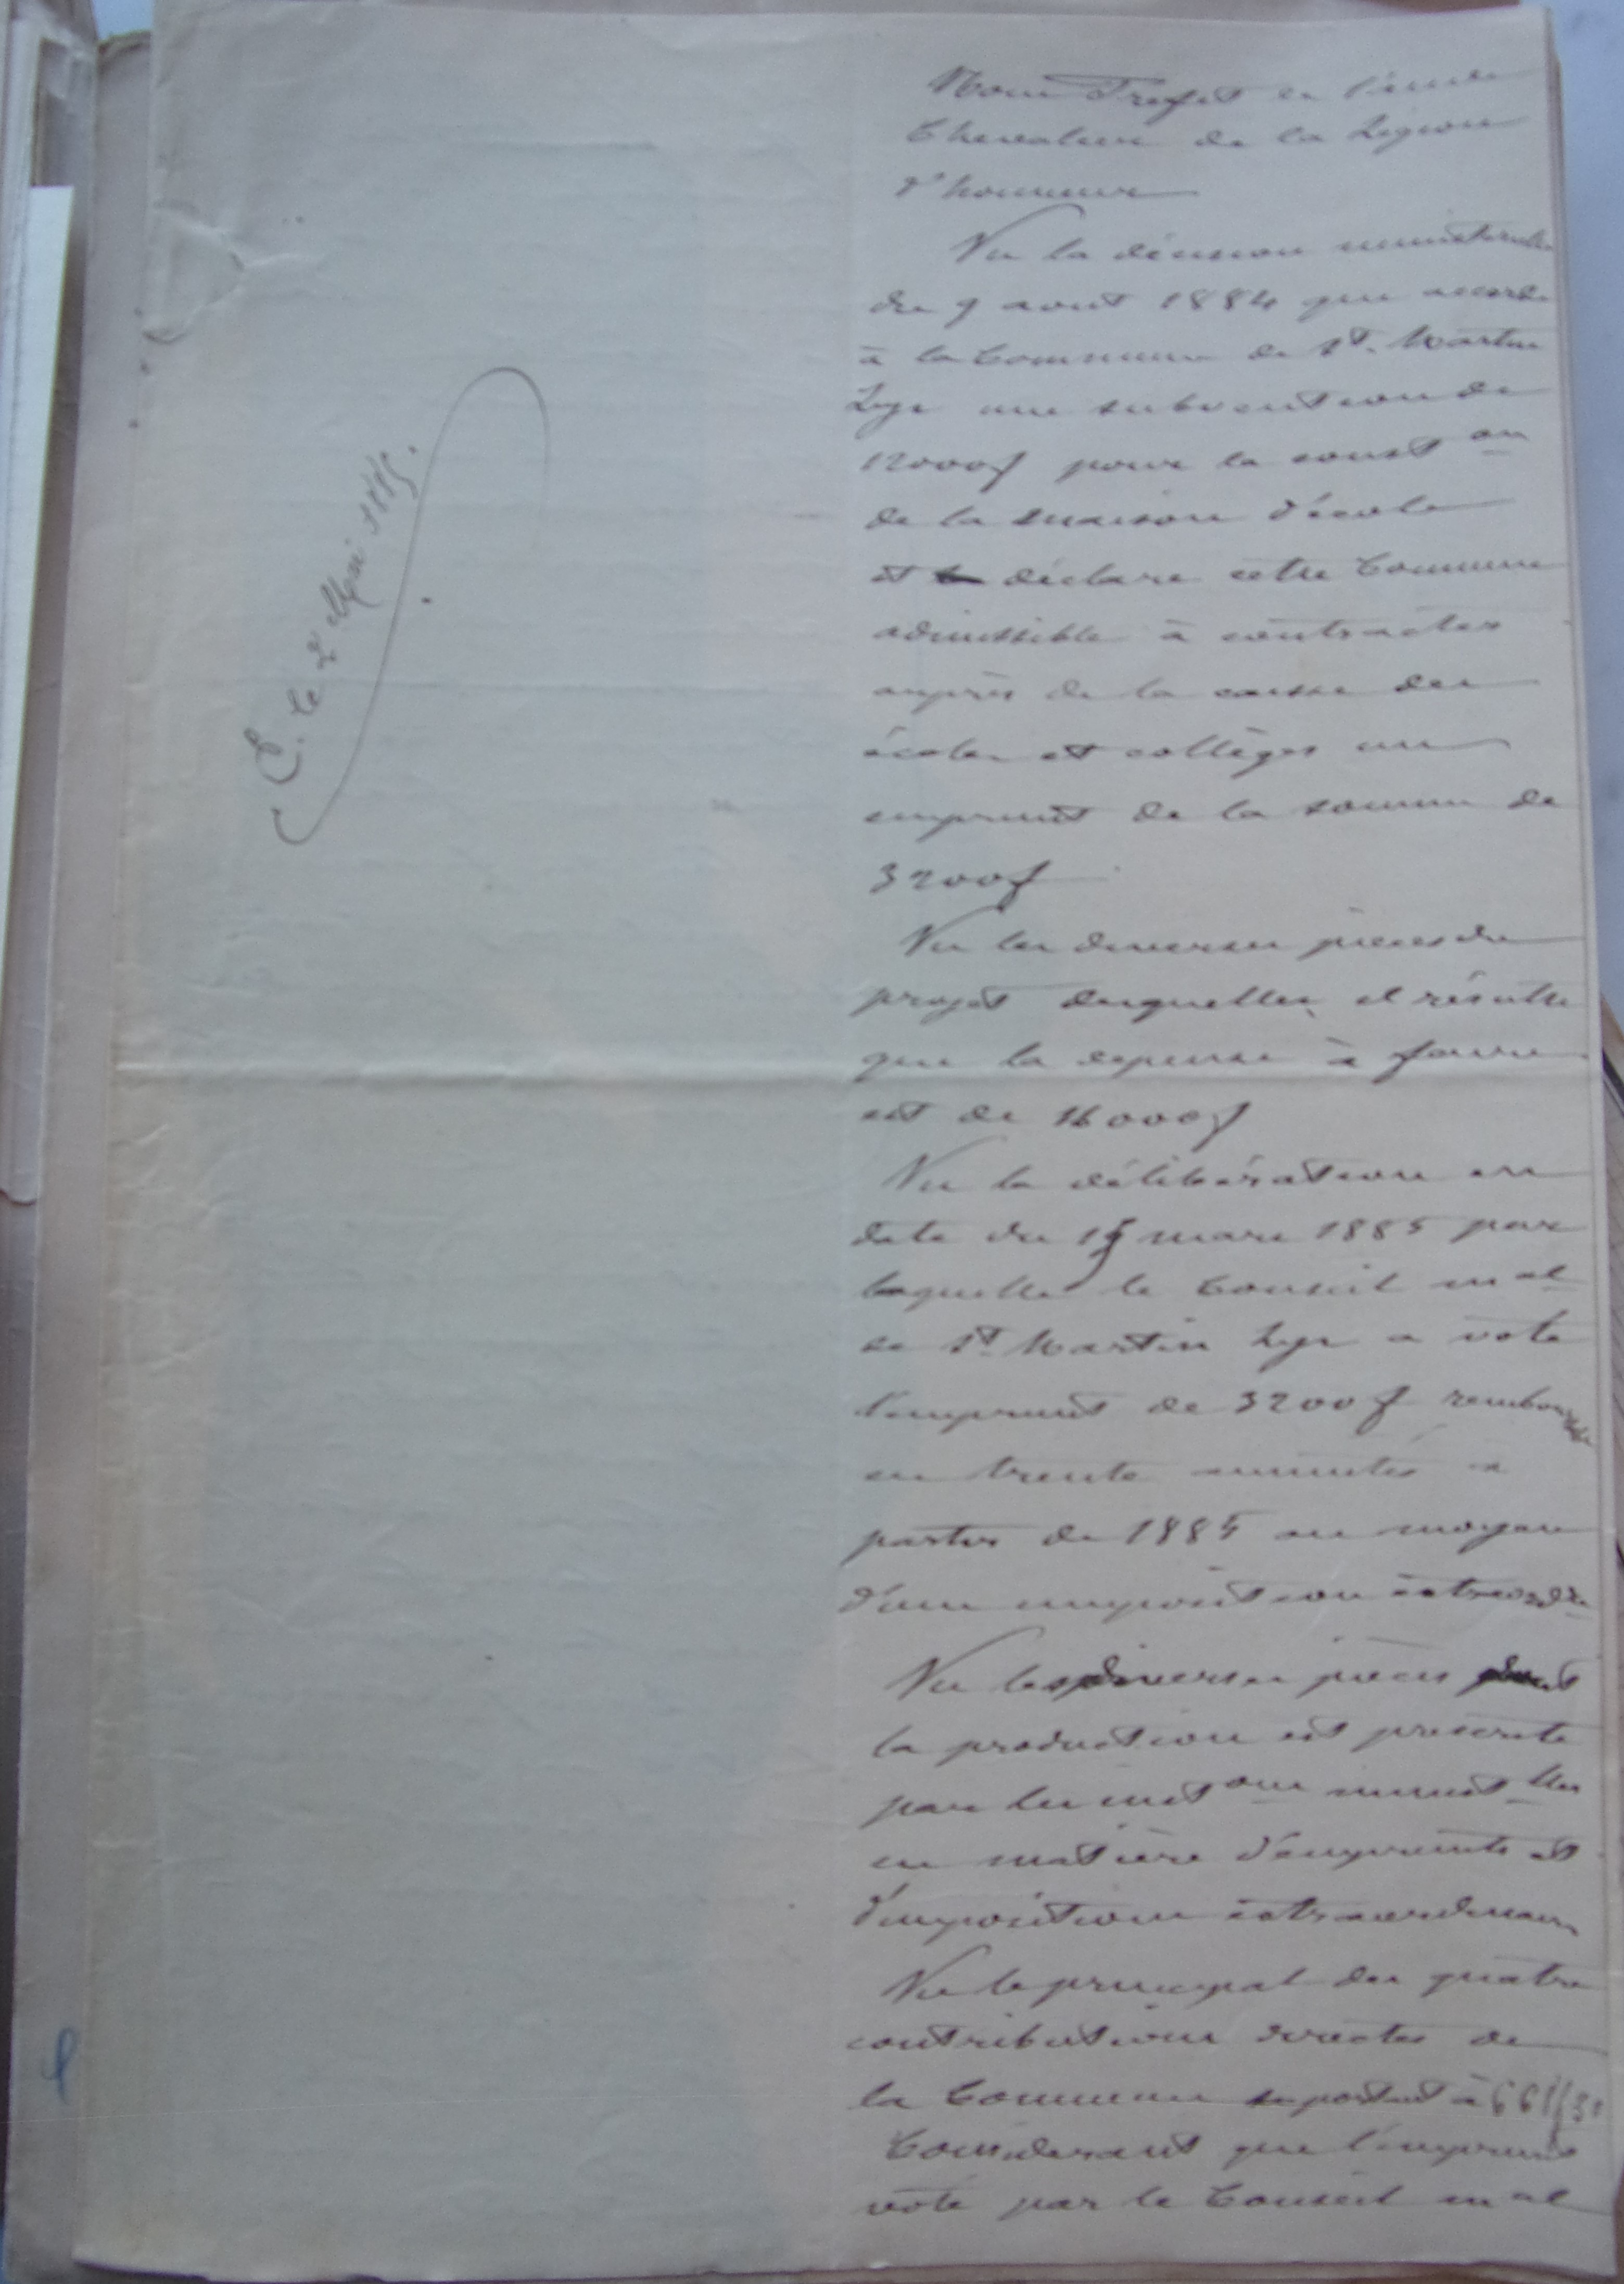 E. le 2 Mai 1885.
Nous Préfet de l'Aude
Chevalier de la Légion
d'honneur
Vu la décision ministerielle
du 9 aout 1884 qui accorde
à la Commune de St. Martin
Lys une subvention de
12000f pour la const on
de la maison d'école
et déclare cette Commune
admissible à contracter
auprès de la caisse des
écoles et collèges un
emprunt de la somme de
3200f
Vu les diverses pieces du
projet desquelles il résulte
que la depense à faire
est de 16000f
Vu la délibération en
date du 15 mars 1885 par
laquelle le Conseil m al
de St. Martin Lys a voté
l'emprunt de 3200f remboursable
en trente annuités à
partir de 1885 au moyen
d'une imposition extraord re
Vu les diverses pièces dont
la production est prescrite
par les inst ons minist lles
en matière d'emprunts et
d'impositions extraordinaires
Vu le principal des quatre
contributions directes de
la Commune se portant à 661f31
Considerant que l'emprunt
voté par le Conseil m al